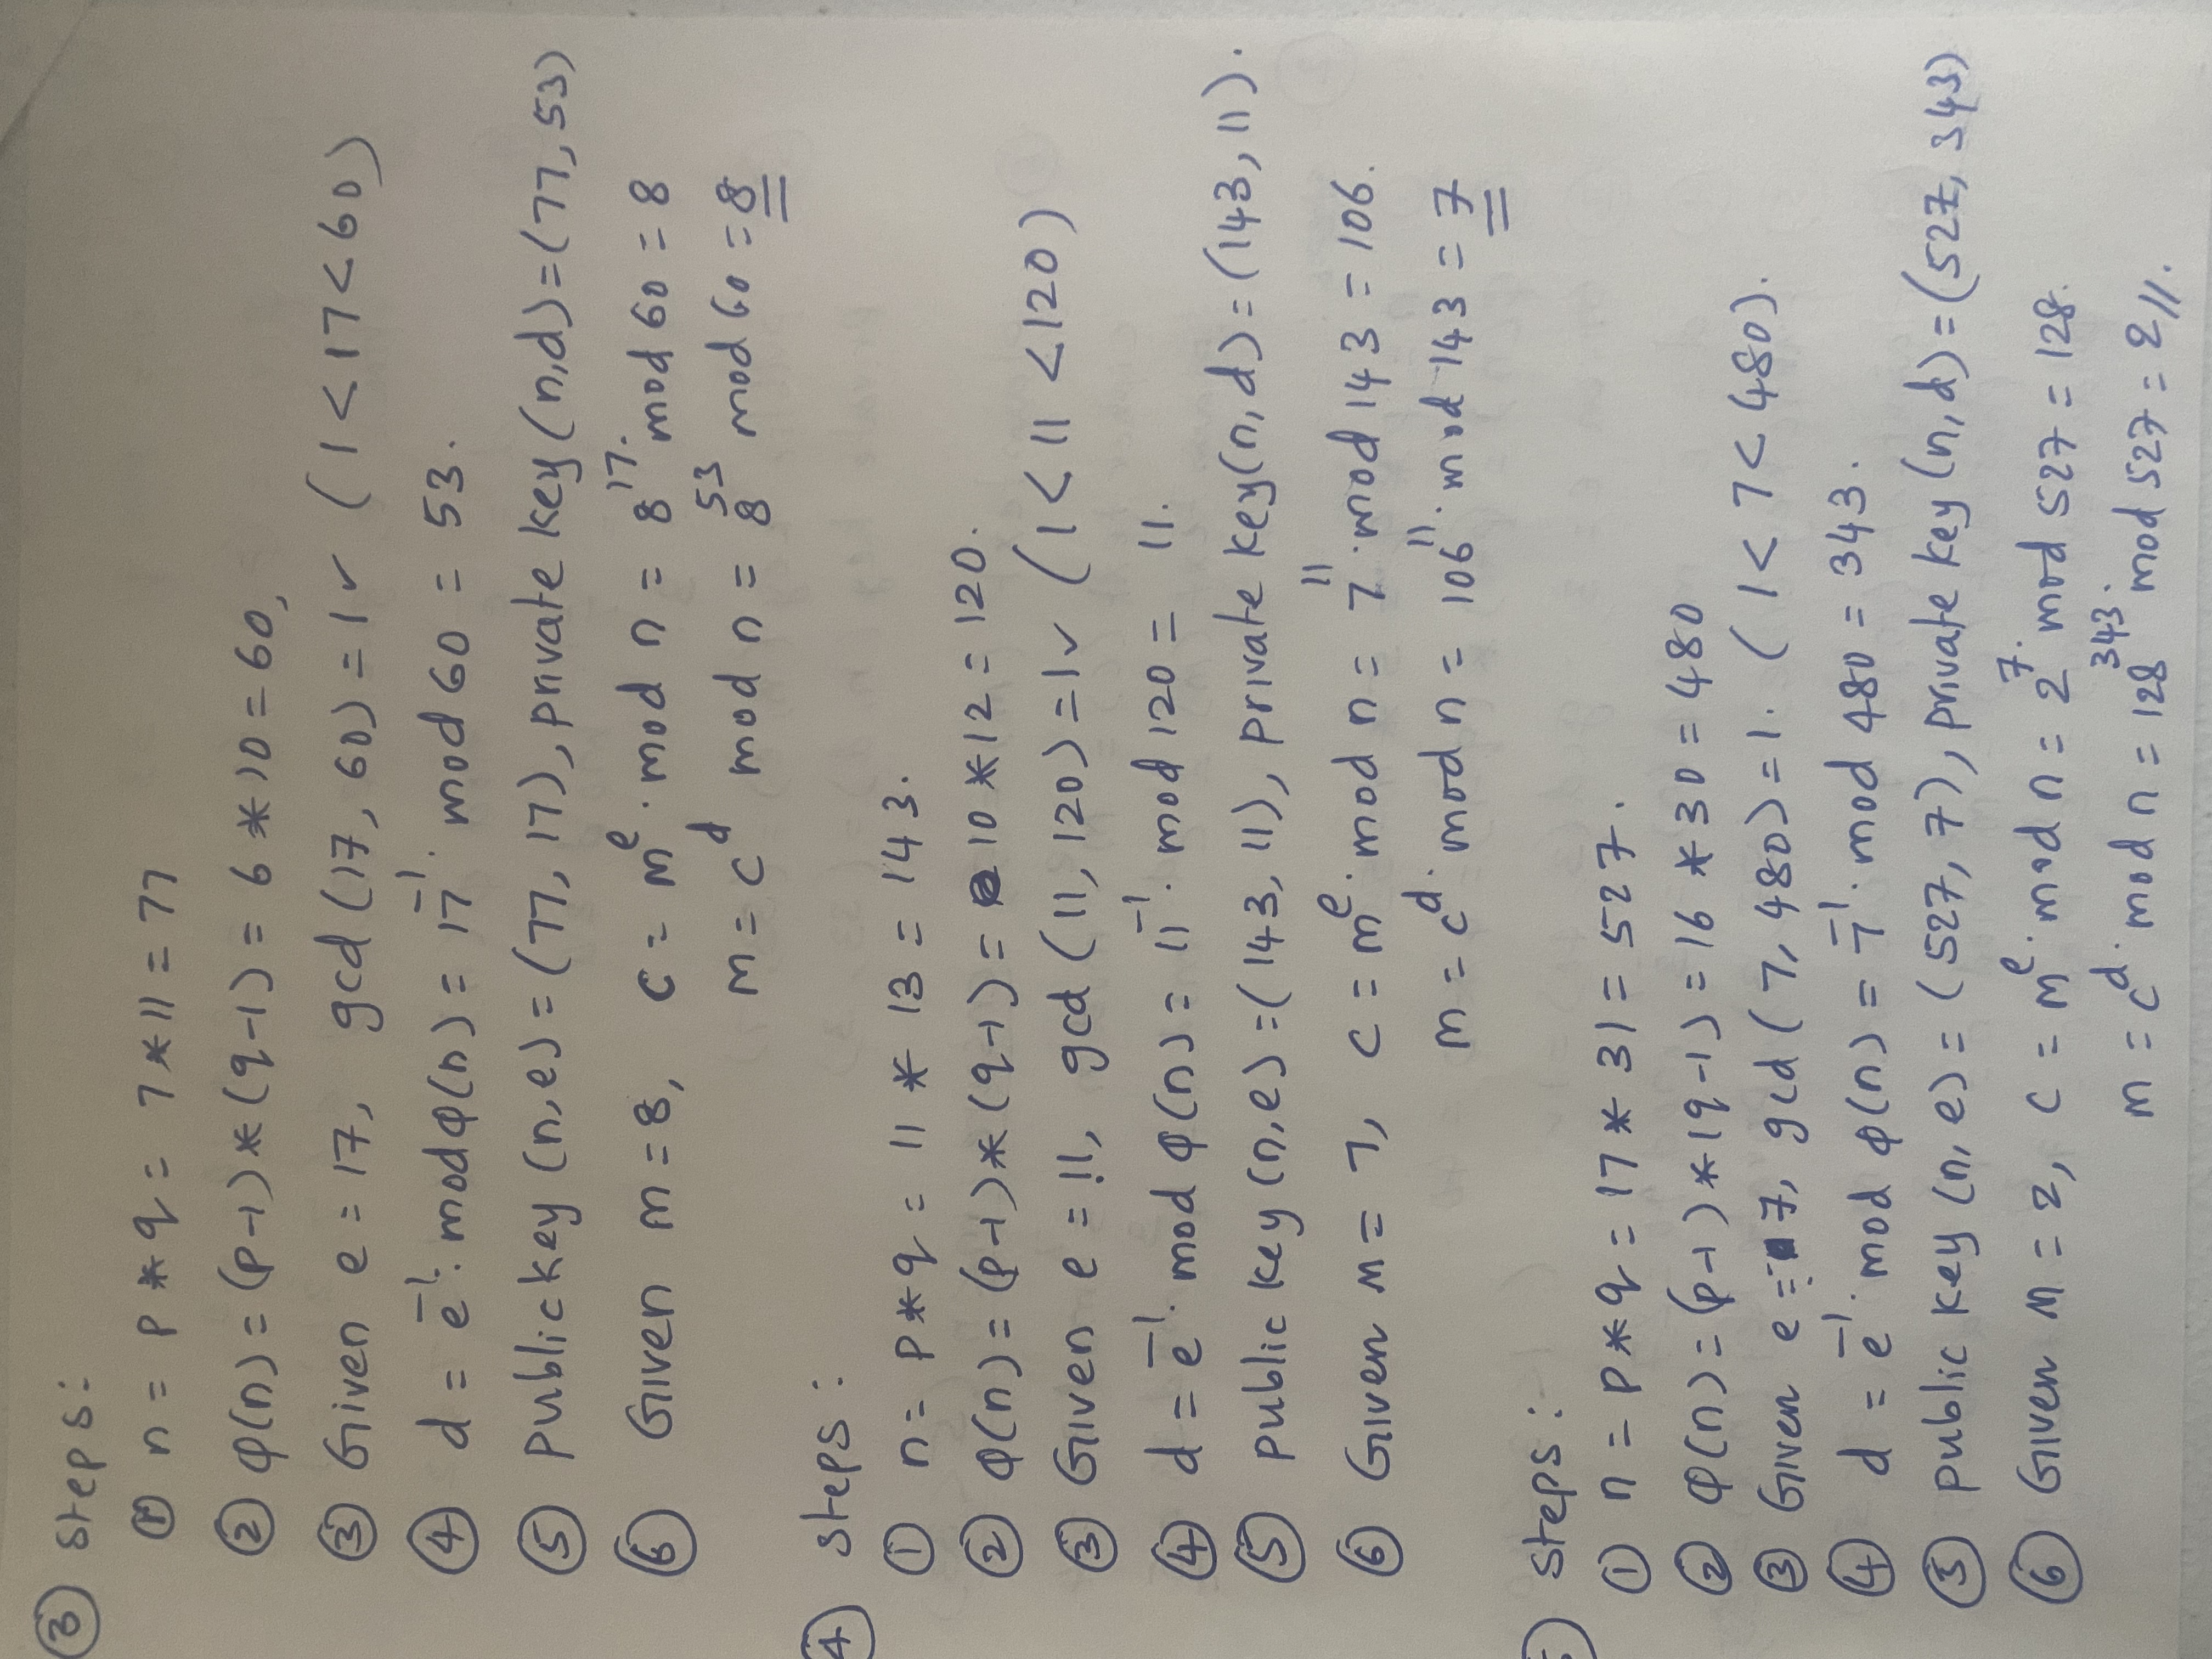 ③ Steps:
① n = p * q = 7 * 11 = 77
② φ(n) = (p-1) * (q-1) = 6 * 10 = 60,
③ Given e = 17, gcd (17, 60) = 1 ✓ (1 < 17 < 60)
④ d = e⁻¹. mod φ(n) = 17⁻¹. mod 60 = 53.
⑤ Public key (n, e) = (77, 17), private key (n, d) = (77, 53)
⑥ Given m = 8, c = m^e . mod n = 8^17. mod 60 = 8
m = c^d mod n = 8^53 mod 60 = 8
④ Steps :
① n = p * q = 11 * 13 = 143.
② φ(n) = (p-1) * (q-1) = 10 * 12 = 120.
③ Given e = 11, gcd (11, 120) = 1 ✓ (1 < 11 < 120)
④ d = e⁻¹. mod φ(n) = 11⁻¹. mod 120 = 11.
⑤ public key (n, e) = (143, 11), private key (n, d) = (143, 11).
⑥ Given m = 7, c = m^e. mod n = 7^11 . mod 143 = 106.
m = c^d. mod n = 106^11. mod 143 = 7
Steps :
① n = p * q = 17 * 31 = 527.
② φ(n) = (p-1) * (q-1) = 16 * 30 = 480
③ Given e = 7, gcd (7, 480) = 1. (1 < 7 < 480).
④ d = e⁻¹. mod φ(n) = 7⁻¹. mod 480 = 343.
⑤ public key (n, e) = (527, 7), private key (n, d) = (527, 343)
⑥ Given M = 2, c = m^e. mod n = 2^7. mod 527 = 128.
m = c^d. mod n = 128^343. mod 527 = 2 //.